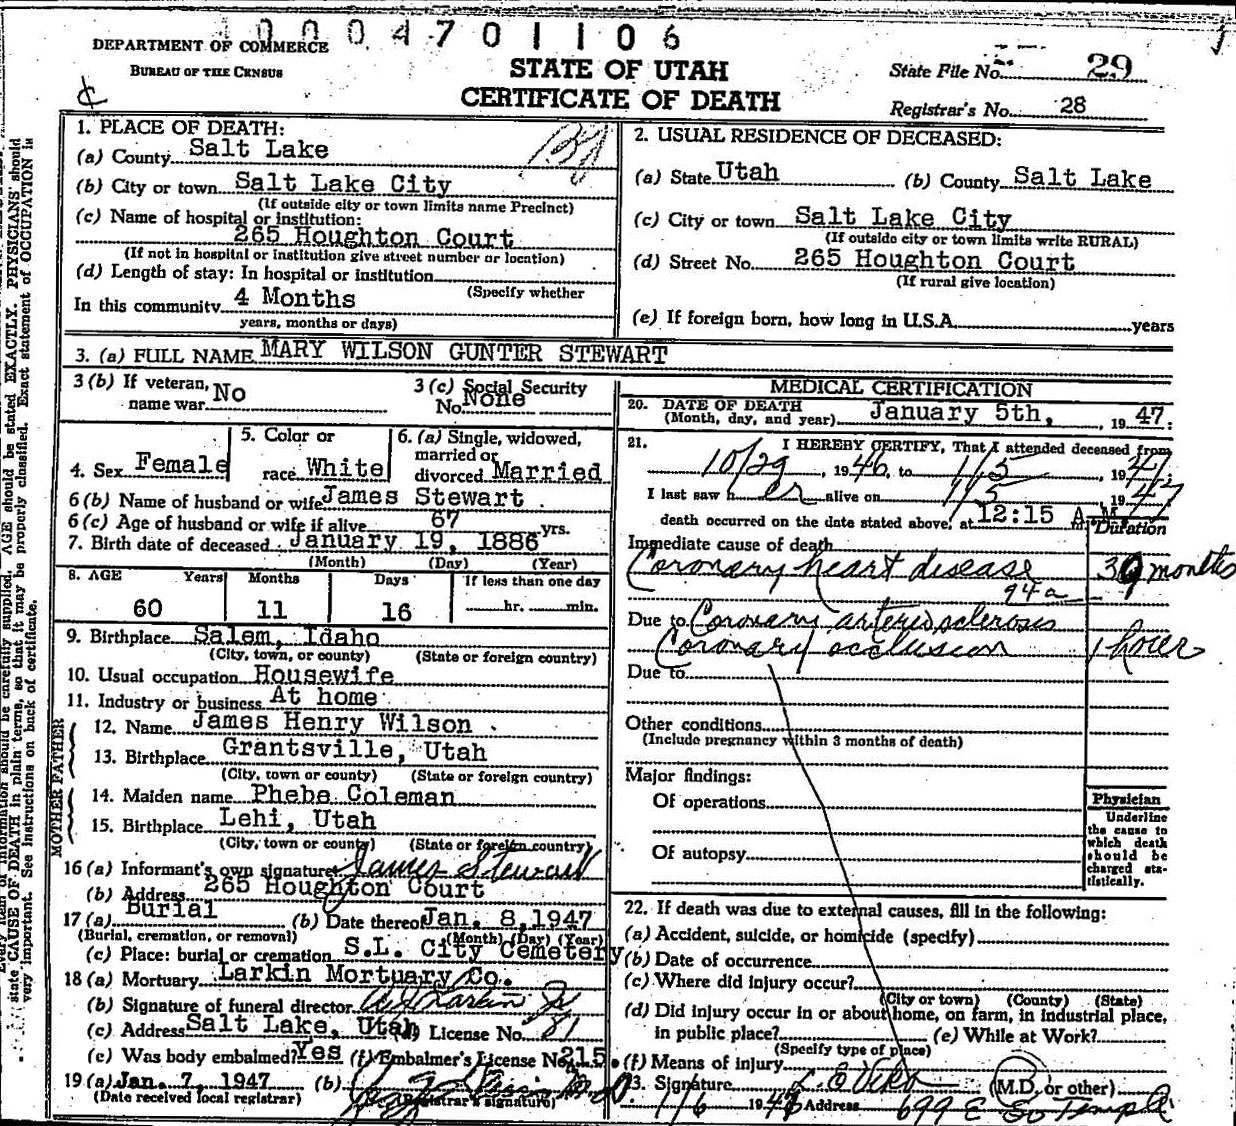 1 0 0 0 4 7 0 1 1 0 6
DEPARTMENT OF COMMERCE
BUREAU OF THE CENSUS
STATE OF UTAH
CERTIFICATE OF DEATH
State File No. 29
Registrar's No. 28
1. PLACE OF DEATH:
(a) County Salt Lake
(b) City or town Salt Lake City
(If outside city or town limits name Precinct)
(c) Name of hospital or institution:
265 Houghton Court
(If not in hospital or institution give street number or location)
(d) Length of stay: In hospital or institution
(Specify whether
In this community 4 Months
years, months or days)
2. USUAL RESIDENCE OF DECEASED:
(a) State Utah (b) County Salt Lake
(c) City or town Salt Lake City
(If outside city or town limits write RURAL)
(d) Street No. 265 Houghton Court
(If rural give location)
(e) If foreign born, how long in U.S.A. years
3. (a) FULL NAME MARY WILSON GUNTER STEWART
3 (b) If veteran, name war No
3 (c) Social Security No. None
4. Sex Female
5. Color or race White
6. (a) Single, widowed, married or divorced Married
6 (b) Name of husband or wife James Stewart
6 (c) Age of husband or wife if alive 67 yrs.
7. Birth date of deceased January 19, 1886
(Month) (Day) (Year)
8. AGE Years Months Days If less than one day
60 11 16 hr. min.
9. Birthplace Salem, Idaho
(City, town, or county) (State or foreign country)
10. Usual occupation Housewife
11. Industry or business At home
FATHER
12. Name James Henry Wilson
13. Birthplace Grantsville, Utah
(City, town or county) (State or foreign country)
MOTHER
14. Maiden name Phebe Coleman
15. Birthplace Lehi, Utah
(City, town or county) (State or foreign country)
16 (a) Informant's own signature James Stewart
(b) Address 265 Houghton Court
17 (a) Burial (b) Date thereof Jan. 8, 1947
(Burial, cremation, or removal) (Month) (Day) (Year)
(c) Place: burial or cremation S.L. City Cemetery
18 (a) Mortuary Larkin Mortuary Co.
(b) Signature of funeral director Larkin
(c) Address Salt Lake, Utah (d) License No. 81
(e) Was body embalmed? Yes (f) Embalmer's License No. 215
19 (a) Jan. 7, 1947 (b)
(Date received local registrar) (Registrar's signature)
MEDICAL CERTIFICATION
20. DATE OF DEATH
(Month, day, and year) January 5th, 1947
21. I HEREBY CERTIFY, That I attended deceased from
10/29, 1946, to 1/5, 1947
I last saw her alive on 1/5 1947
death occurred on the date stated above, at 12:15 A M
Duration
Immediate cause of death
Coronary heart disease months
94a
Due to Coronary arteriosclerosis
Coronary occlusion 1 hour
Due to
Other conditions
(Include pregnancy within 3 months of death)
Major findings:
Of operations
Of autopsy
Physician
Underline
the cause to
which death
should be
charged sta-
tistically.
22. If death was due to external causes, fill in the following:
(a) Accident, suicide, or homicide (specify)
(b) Date of occurrence
(c) Where did injury occur?
(City or town) (County) (State)
(d) Did injury occur in or about home, on farm, in industrial place,
in public place? (e) While at Work?
(Specify type of place)
(f) Means of injury
23. Signature (M.D. or other)
1/6 Address 699 E So Temple